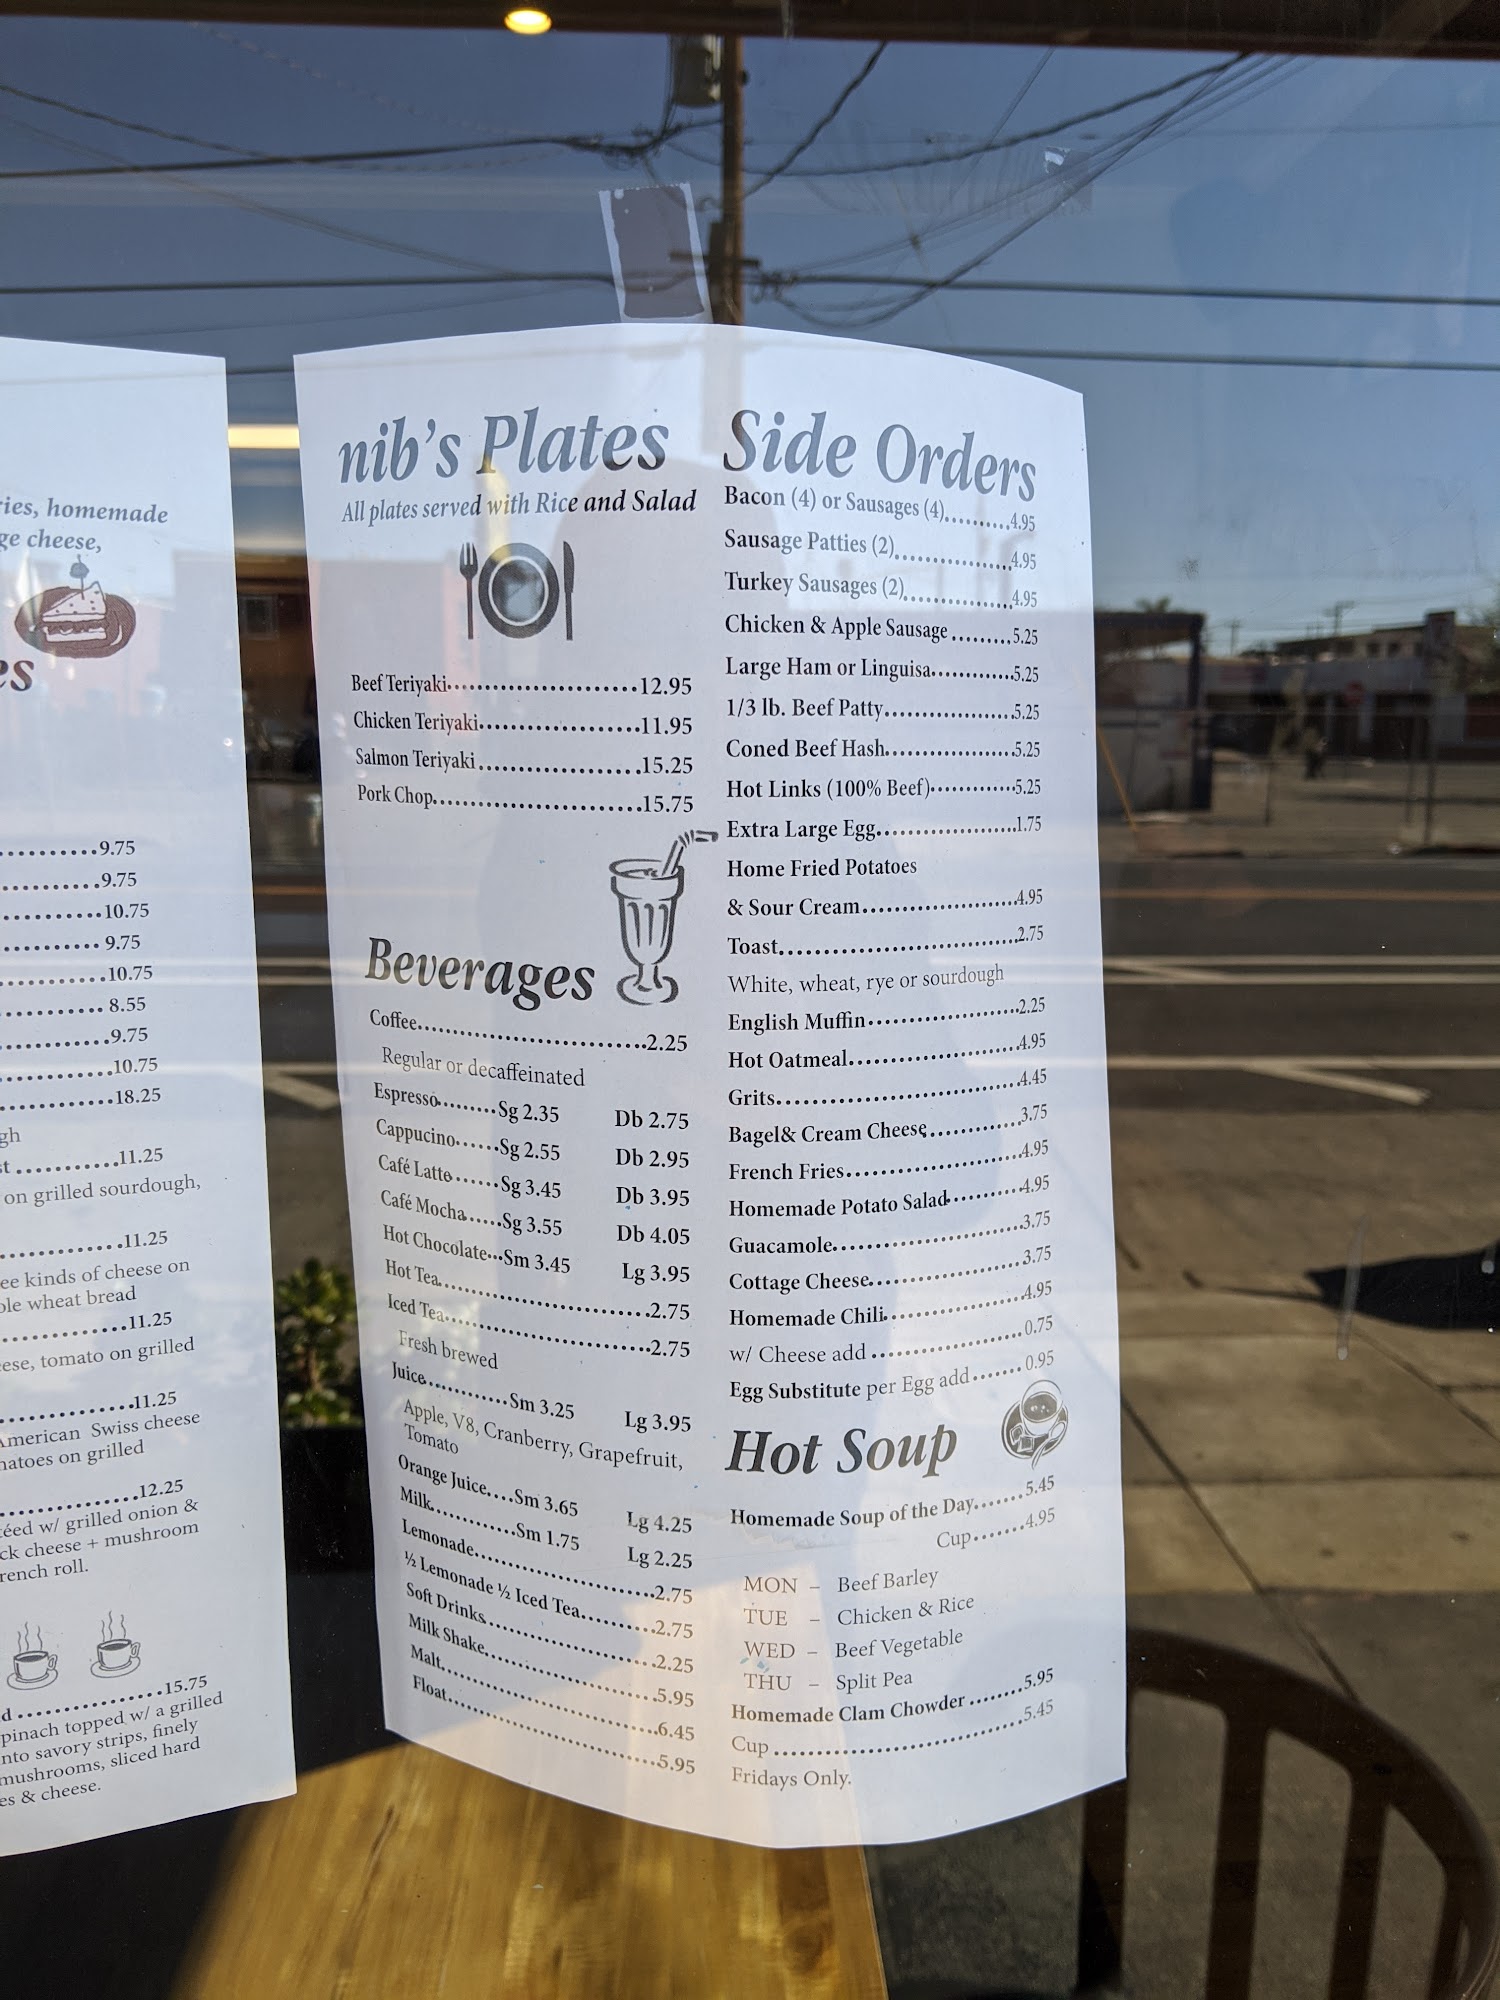 ries, homemade
ge cheese,
es
9.75
9.75
10.75
9.75
10.75
8.55
9.75
10.75
18.25
gh
st............11.25
on grilled sourdough,
11.25
ee kinds of cheese on
ole wheat bread
11.25
eese, tomato on grilled
11.25
American Swiss cheese
matoes on grilled
12.25
téed w/ grilled onion &
ck cheese + mushroom
rench roll.
d...............15.75
pinach topped w/ a grilled
nto savory strips, finely
mushrooms, sliced hard
es & cheese.
nib's Plates
All plates served with Rice and Salad
Beef Teriyaki........................12.95
Chicken Teriyaki....................11.95
Salmon Teriyaki....................15.25
Pork Chop..........................15.75
Beverages
Coffee.............................2.25
Regular or decaffeinated
Espresso.........Sg 2.35 Db 2.75
Cappucino......Sg 2.55 Db 2.95
Café Latte.......Sg 3.45 Db 3.95
Café Mocha.....Sg 3.55 Db 4.05
Hot Chocolate...Sm 3.45 Lg 3.95
Hot Tea..........................2.75
Iced Tea..........................2.75
Fresh brewed
Juice...........Sm 3.25 Lg 3.95
Apple, V8, Cranberry, Grapefruit,
Tomato
Orange Juice....Sm 3.65 Lg 4.25
Milk...........Sm 1.75 Lg 2.25
Lemonade.......................2.75
½ Lemonade ½ Iced Tea.........2.75
Soft Drinks......................2.25
Milk Shake......................5.95
Malt...........................6.45
Float...........................5.95
Side Orders
Bacon (4) or Sausages (4)..........4.95
Sausage Patties (2)................4.95
Turkey Sausages (2)...............4.95
Chicken & Apple Sausage.........5.25
Large Ham or Linguisa............5.25
1/3 lb. Beef Patty..................5.25
Coned Beef Hash..................5.25
Hot Links (100% Beef)............5.25
Extra Large Egg....................1.75
Home Fried Potatoes
& Sour Cream......................4.95
Toast..................................2.75
White, wheat, rye or sourdough
English Muffin.....................2.25
Hot Oatmeal........................4.95
Grits..................................4.45
Bagel& Cream Cheese.............3.75
French Fries........................4.95
Homemade Potato Salad..........4.95
Guacamole..........................3.75
Cottage Cheese.....................3.75
Homemade Chili...................4.95
w/ Cheese add.....................0.75
Egg Substitute per Egg add.......0.95
Hot Soup
Homemade Soup of the Day.......5.45
Cup.......4.95
MON – Beef Barley
TUE – Chicken & Rice
WED – Beef Vegetable
THU – Split Pea
Homemade Clam Chowder........5.95
Cup...................................5.45
Fridays Only.